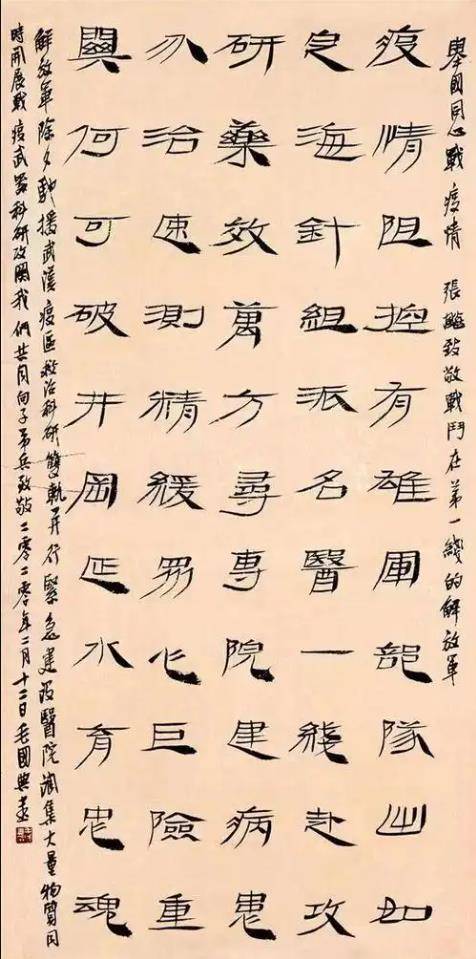 舉國同心戰疫情 張繼致敬戰鬥在第一綫的解放軍
疫情阻控有雄軍部隊出如
定海針組派名醫一綫赴攻
研藥效萬方尋專院建病患
分治速測精緩眾化巨險重
興何可破井岡延水育忠魂
解放軍除夕馳援武漢疫區救治科研雙軌并行緊急建設醫院調集大量物資同
時開展戰疫武器科研攻關我們共同向子弟兵致敬二零二零年二月十二日毛國典書